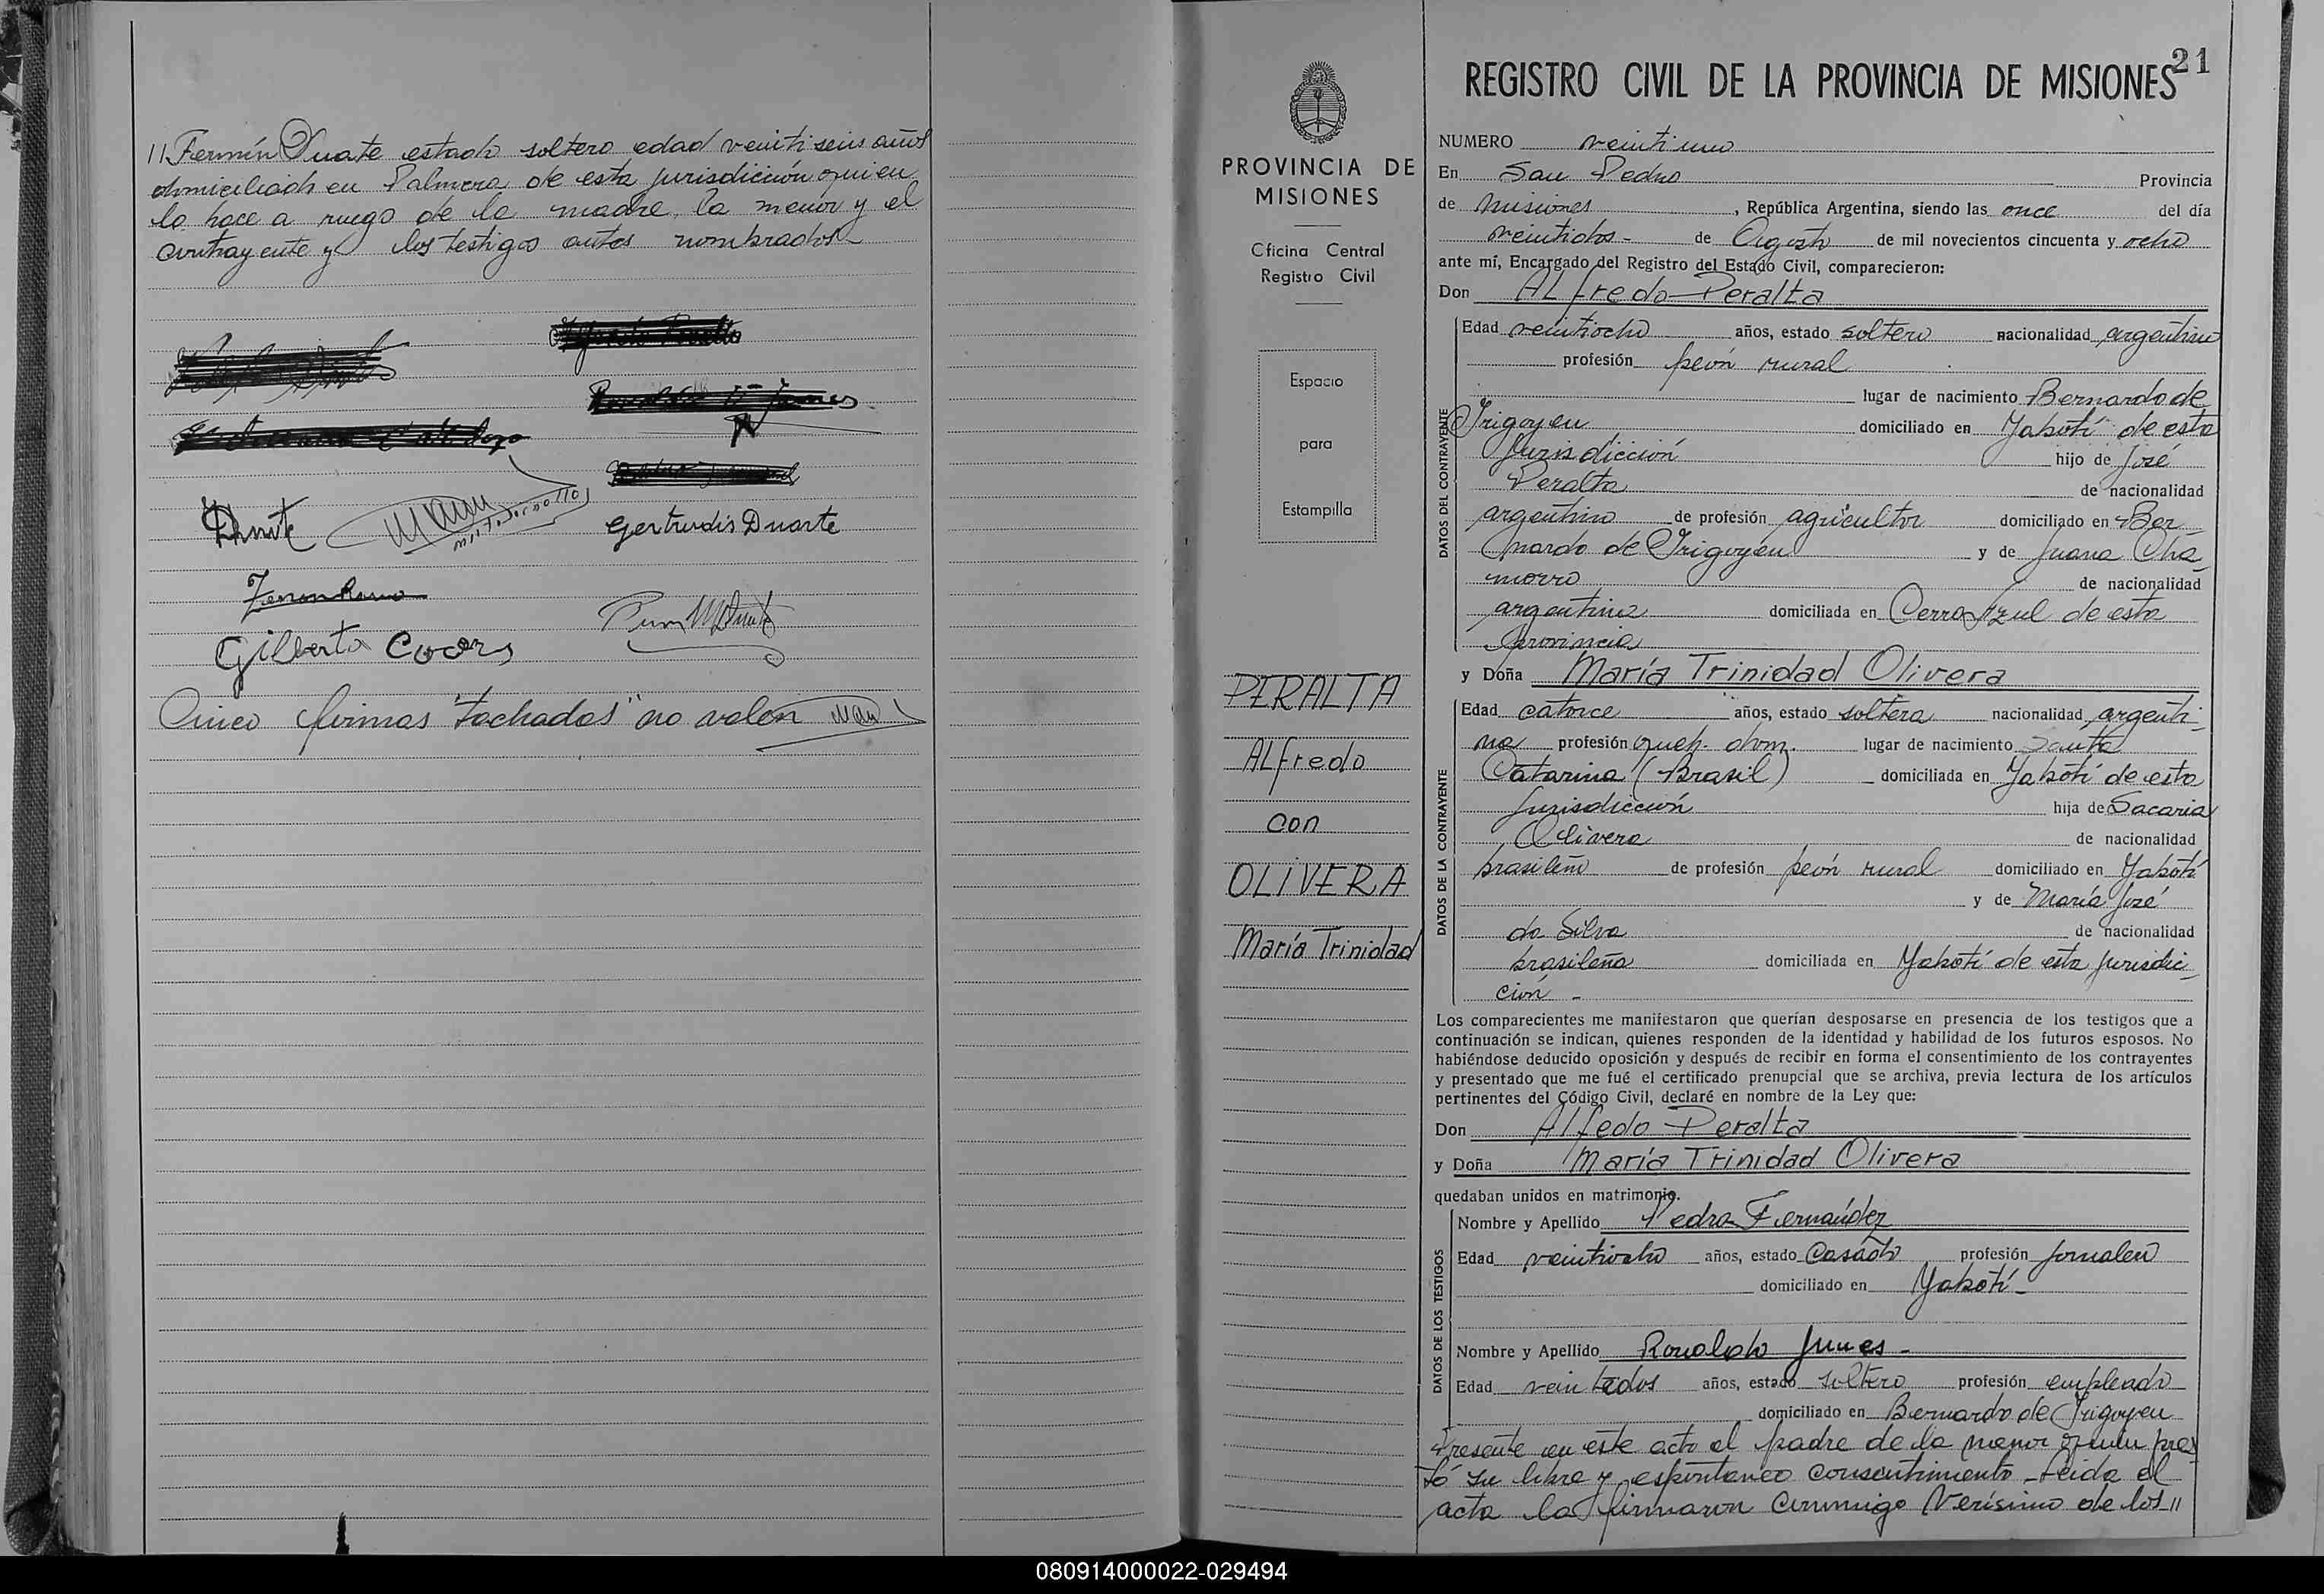 // Fermín Duarte estado soltero edad veinti seis años
domiciliado en Palmera de esta jurisdicción quien
lo hace a ruego de la madre, la menor y el
contrayente y los testigos antes nombrados
Duarte
Gertrudis Duarte
Zenon Ramo
Gilberto
Cinco firmas "tachadas" no valen
PROVINCIA DE
MISIONES
Oficina Central
Registro Civil
Espacio
para
Estampilla
PERALTA
ALfredo
con
OLIVERA
María Trinidad
21
REGISTRO CIVIL DE LA PROVINCIA DE MISIONES
NUMERO veintiuno
En San Pedro Provincia
de Misiones, República Argentina, siendo las once del día
veintidos - de Agosto de mil novecientos cincuenta y ocho
ante mí, Encargado del Registro del Estado Civil, comparecieron:
Don ALfredo Peralta
DATOS DEL CONTRAYENTE
Edad veintiocho años, estado soltero nacionalidad argentino
profesión peón rural
lugar de nacimiento Bernardo de
Irigoyen domiciliado en Yabotí de esta
Jurisdicción hijo de José
Peralta de nacionalidad
argentino de profesión agricultor domiciliado en Ber
nardo de Irigoyen y de Juana Cha
morro de nacionalidad
argentina domiciliada en Cerro Azul de esta
provincia
y Doña María Trinidad Olivera
DATOS DE LA CONTRAYENTE
Edad catorce años, estado soltera nacionalidad argenti-
na profesión queh. dom. lugar de nacimiento Santa
Catarina (Brasil) domiciliada en Yabotí de esta
Jurisdicción hija de Sacaria
Olivera de nacionalidad
brasileño de profesión peón rural domiciliado en Yabotí
y de María José
da Silva de nacionalidad
brasileña domiciliada en Yabotí de esta jurisdic-
ción -
Los comparecientes me manifestaron que querían desposarse en presencia de los testigos que a
continuación se indican, quienes responden de la identidad y habilidad de los futuros esposos. No
habiéndose deducido oposición y después de recibir en forma el consentimiento de los contrayentes
y presentado que me fué el certificado prenupcial que se archiva, previa lectura de los artículos
pertinentes del Código Civil, declaré en nombre de la Ley que:
Don Alfedo Peralta
y Doña María Trinidad Olivera
quedaban unidos en matrimonio.
DATOS DE LOS TESTIGOS
Nombre y Apellido Pedro Fernández
Edad veintiocho años, estado Casado profesión jornalero
domiciliado en Yabotí -
Nombre y Apellido Ronaldo Junes -
Edad veintidos años, estado soltero profesión empleado
domiciliado en Bernardo de Irigoyen
Presente en este acto el padre de la menor quien pres
tó su libre y espontaneo consentimiento - Leida el
acta la firmaron conmigo Verísimo de los //
080914000022-029494